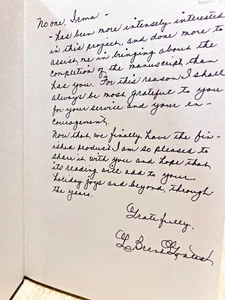 No one, Irma -
- has been more intensely interested
in this project, and done more to
assist me in bringing about the
completion of the manuscript than
has you. For this reason I shall
always be most grateful to you
for your service and your en-
couragement.
Now that we finally have the fin-
ished product I am so pleased to
share it with you and hope that
its reading will add to your
holiday joys and beyond, through
the years.
Gratefully,